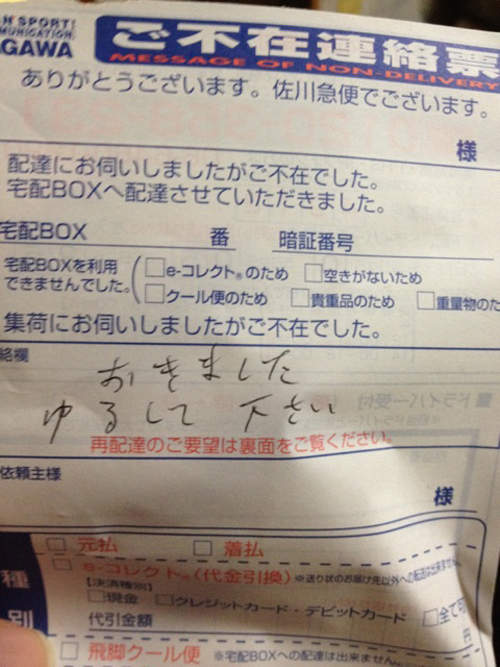 N SPORT
MUNICATION.
GAWA
ご不在連絡票
MESSAGE OF NON-DELIVERY
ありがとうございます。佐川急便でございます。
様
配達にお伺いしましたがご不在でした。
宅配BOXへ配達させていただきました。
宅配BOX 番 暗証番号
宅配BOXを利用できませんでした。
□e-コレクト®のため □空きがないため
□クール便のため □貴重品のため □重量物のた
集荷にお伺いしましたがご不在でした。
絡欄
おきました
ゆるして下さい
再配達のご要望は裏面をご覧ください。
依頼主様
様
種別
□ 元払 □ 着払
□ e-コレクト®(代金引換) ※送り状のお届け先以外への配達は出来ません
【決済種別】
□現金 □クレジットカード・デビットカード □全て可
代引金額 円
□ 飛脚クール便 ※宅配BOXへの配達は出来ません。